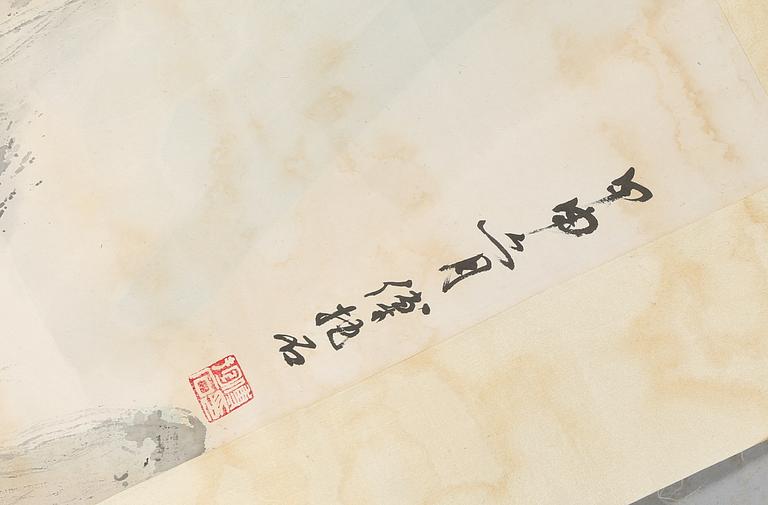 甲申六月傅抱石